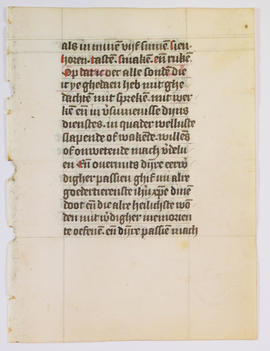 als in minen vijf sinnen. sien
horen. tasten. smaken. en̄ ruken.
Op dat ic ver alle sonden die
ic ye ghedaen heb mit ghe
dachten mit spreken. mit wer
ken en̄ in versumenisse dijns
dienstes. in quader wellusten
slapende of wakende. willens
of onwetende mach
En̄ overmits dijnre eerw
digher passien ghif mi alre
goedertierenste ihū xp̄e dinen
doot en̄ die alre heilichste won
den mit wdigher memorien
te oefenen. en̄ dijnre passien mach